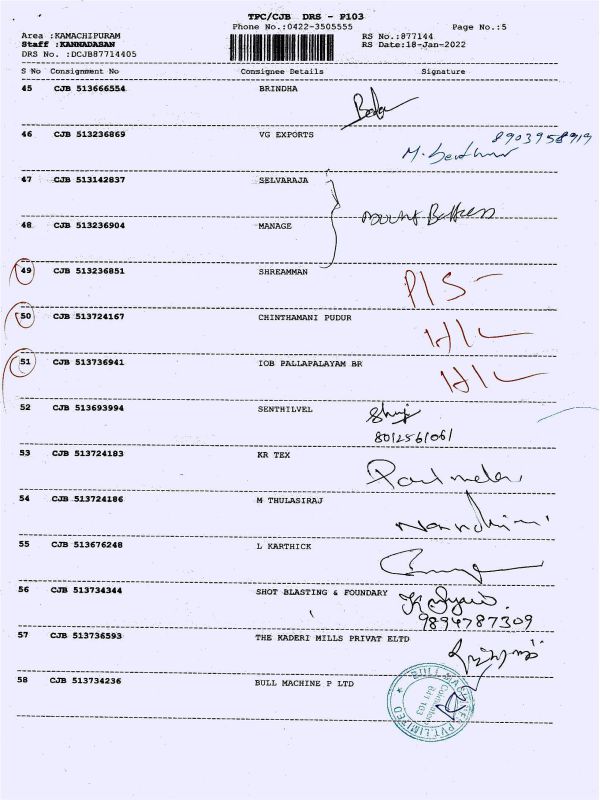 TPC/CJB DRS - P103
Phone No.:0422-3505555 Page No.:5
Area :KAMACHIPURAM RS No.:877144
Staff :KANNADASAN RS Date:18-Jan-2022
DRS No. :DCJB87714405
S No Consignment No Consignee Details Signature
45 CJB 513666554 BRINDHA
46 CJB 513236869 VG EXPORTS 8903958919
47 CJB 513142837 SELVARAJA
48 CJB 513236904 MANAGE
49 CJB 513236851 SHREAMMAN P/S
50 CJB 513724167 CHINTHAMANI PUDUR H/L
51 CJB 513736941 IOB PALLAPALAYAM BR H/L
52 CJB 513693994 SENTHILVEL
8012561061
53 CJB 513724183 KR TEX
54 CJB 513724186 M THULASIRAJ
55 CJB 513676248 L KARTHICK
56 CJB 513734344 SHOT BLASTING & FOUNDARY
9894787309
57 CJB 513736593 THE KADERI MILLS PRIVAT ELTD
58 CJB 513734236 BULL MACHINE P LTD
BULL MACHINES PVT LIMITED
Coimbatore
641 103